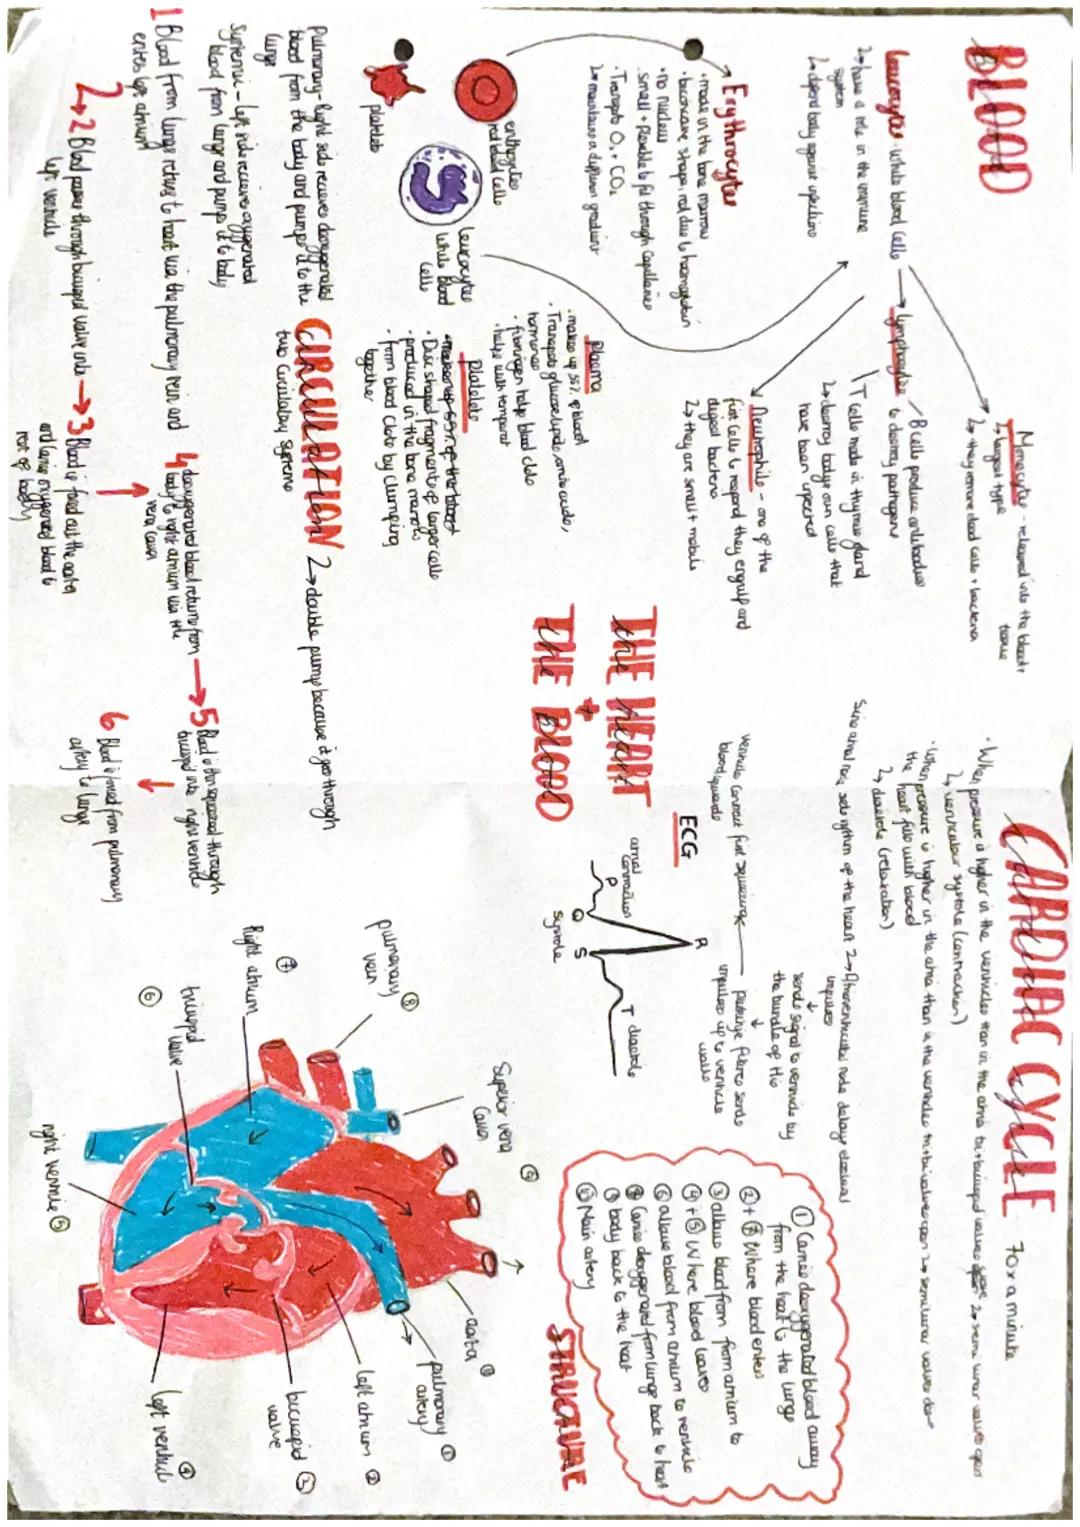 BLOOD
Leucocytes - white blood cells
↳ have a role in the immune
system
↳ defend body against infections
lymphocytes
B cells produce antibodies
to destroy pathogens
T cells made in thymus gland
↳ destroy bodys own cells that
have been infected
Monocytes - released into the blood +
tissue
↳ largest type
↳ they remove dead cells + bacteria
Neutrophils - one of the
first cells to respond they engulf and
digest bacteria
↳ they are small + mobile
Erythrocytes
· made in the bone marrow
· biconcave shape, red due to haemoglobin
· no nucleus
· small + flexible to fit through capillaries
· Transports O₂ + CO₂
↳ maintains a diffusion gradient
red blood cells
leucocytes
white blood
cells
platelets
Plasma
· makes up 55% of blood
· Transports glucose, lipids, amino acids,
hormones
· fibrinogen helps blood clots
· helps with
Platelets
· Disc shaped fragments of larger cells
· produced in the bone marrow
· from blood clots by clumping
together
THE HEART
+
THE BLOOD
CIRCULATION
↳ double pump because it goes through
two circulatory systems
Pulmonary - Right side recieves deoxygenated
blood from the body and pumps it to the
lungs
Systemic - left side recieves oxygenated
blood from lungs and pumps it to body
1 Blood from lungs return to heart via the pulmonary vein and
enters left atrium
2 Blood passes through bicuspid valve into
left ventricle
3 Blood is forced out the aorta
and carries oxygenated blood to
rest of body
4 deoxygenated blood returns from
body to right atrium via the
vena cava
5 Blood is then squeezed through
tricuspid into right ventricle
6 Blood is forced from pulmonary
artery to lungs
CARDIAC CYCLE 70 x a minute
· When pressure is higher in the ventricles than in the atria tri + bicuspid valves
↳ semi lunar valve open
↳ ventricular systole (contraction)
· When pressure is higher in the atria than in the ventricles tri + bi valves open ↳ semilunar valves
the heart fills with blood
↳ diastole (relaxation)
node sets rythm of the heart ↳ Atrioventricular node delays electrical
impulses
sends signal to ventricles by
the bundle of His
fibres sends
impulses up to ventricle
walls
ventricles contract first squeezing
blood upwards
ECG
atrial
contraction
P
Q
R
S
T
systole
diastole
① Carries deoxygenated blood away
from the heart to the lungs
② + ⑦ Where blood enters
③ allows blood from atrium to
④ + ⑤ Where blood leaves
⑥ allows blood from atrium to ventricle
⑧ Carries deoxygenated from lungs back to heart
⑨ body back to the heart
⑩ Main artery
STRUCTURE
Superior vena
cava ⑨
pulmonary ⑧
vein
⑦
Right atrium
tricuspid
valve
⑥
right ventricle ⑤
aorta ⑩
pulmonary ①
artery
left atrium ②
biccuspid ③
valve
left ventricle ④